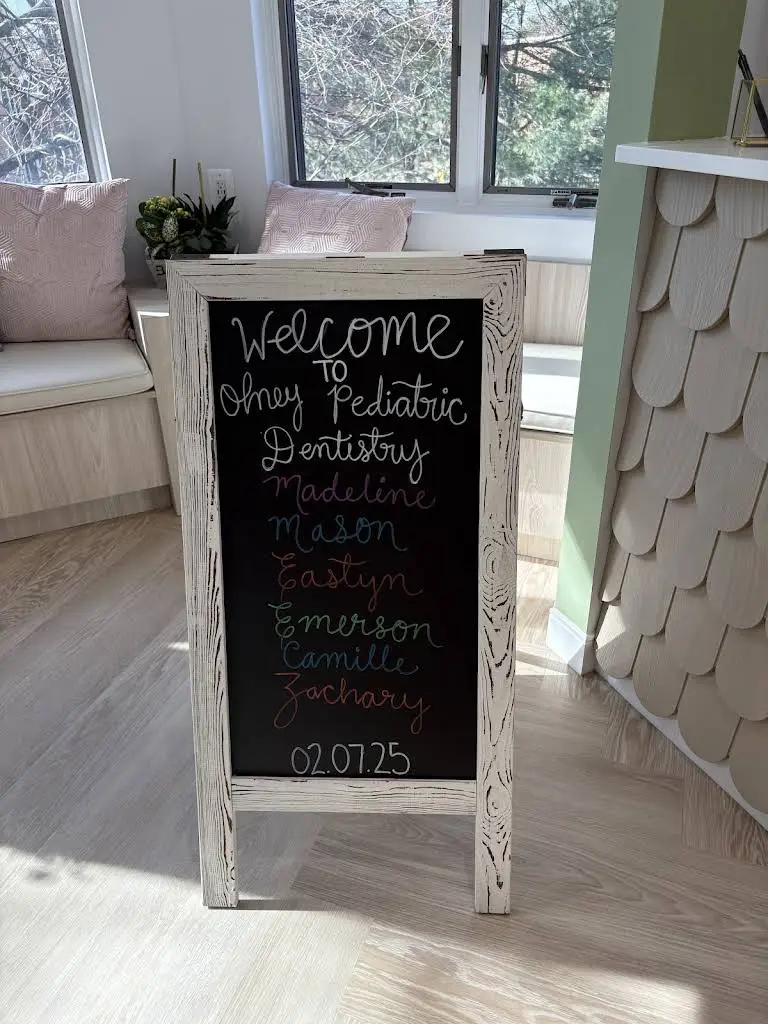 Welcome
TO
Olney Pediatric
Dentistry
Madeline
Mason
Eastyn
Emerson
Camille
Zachary
02.07.25